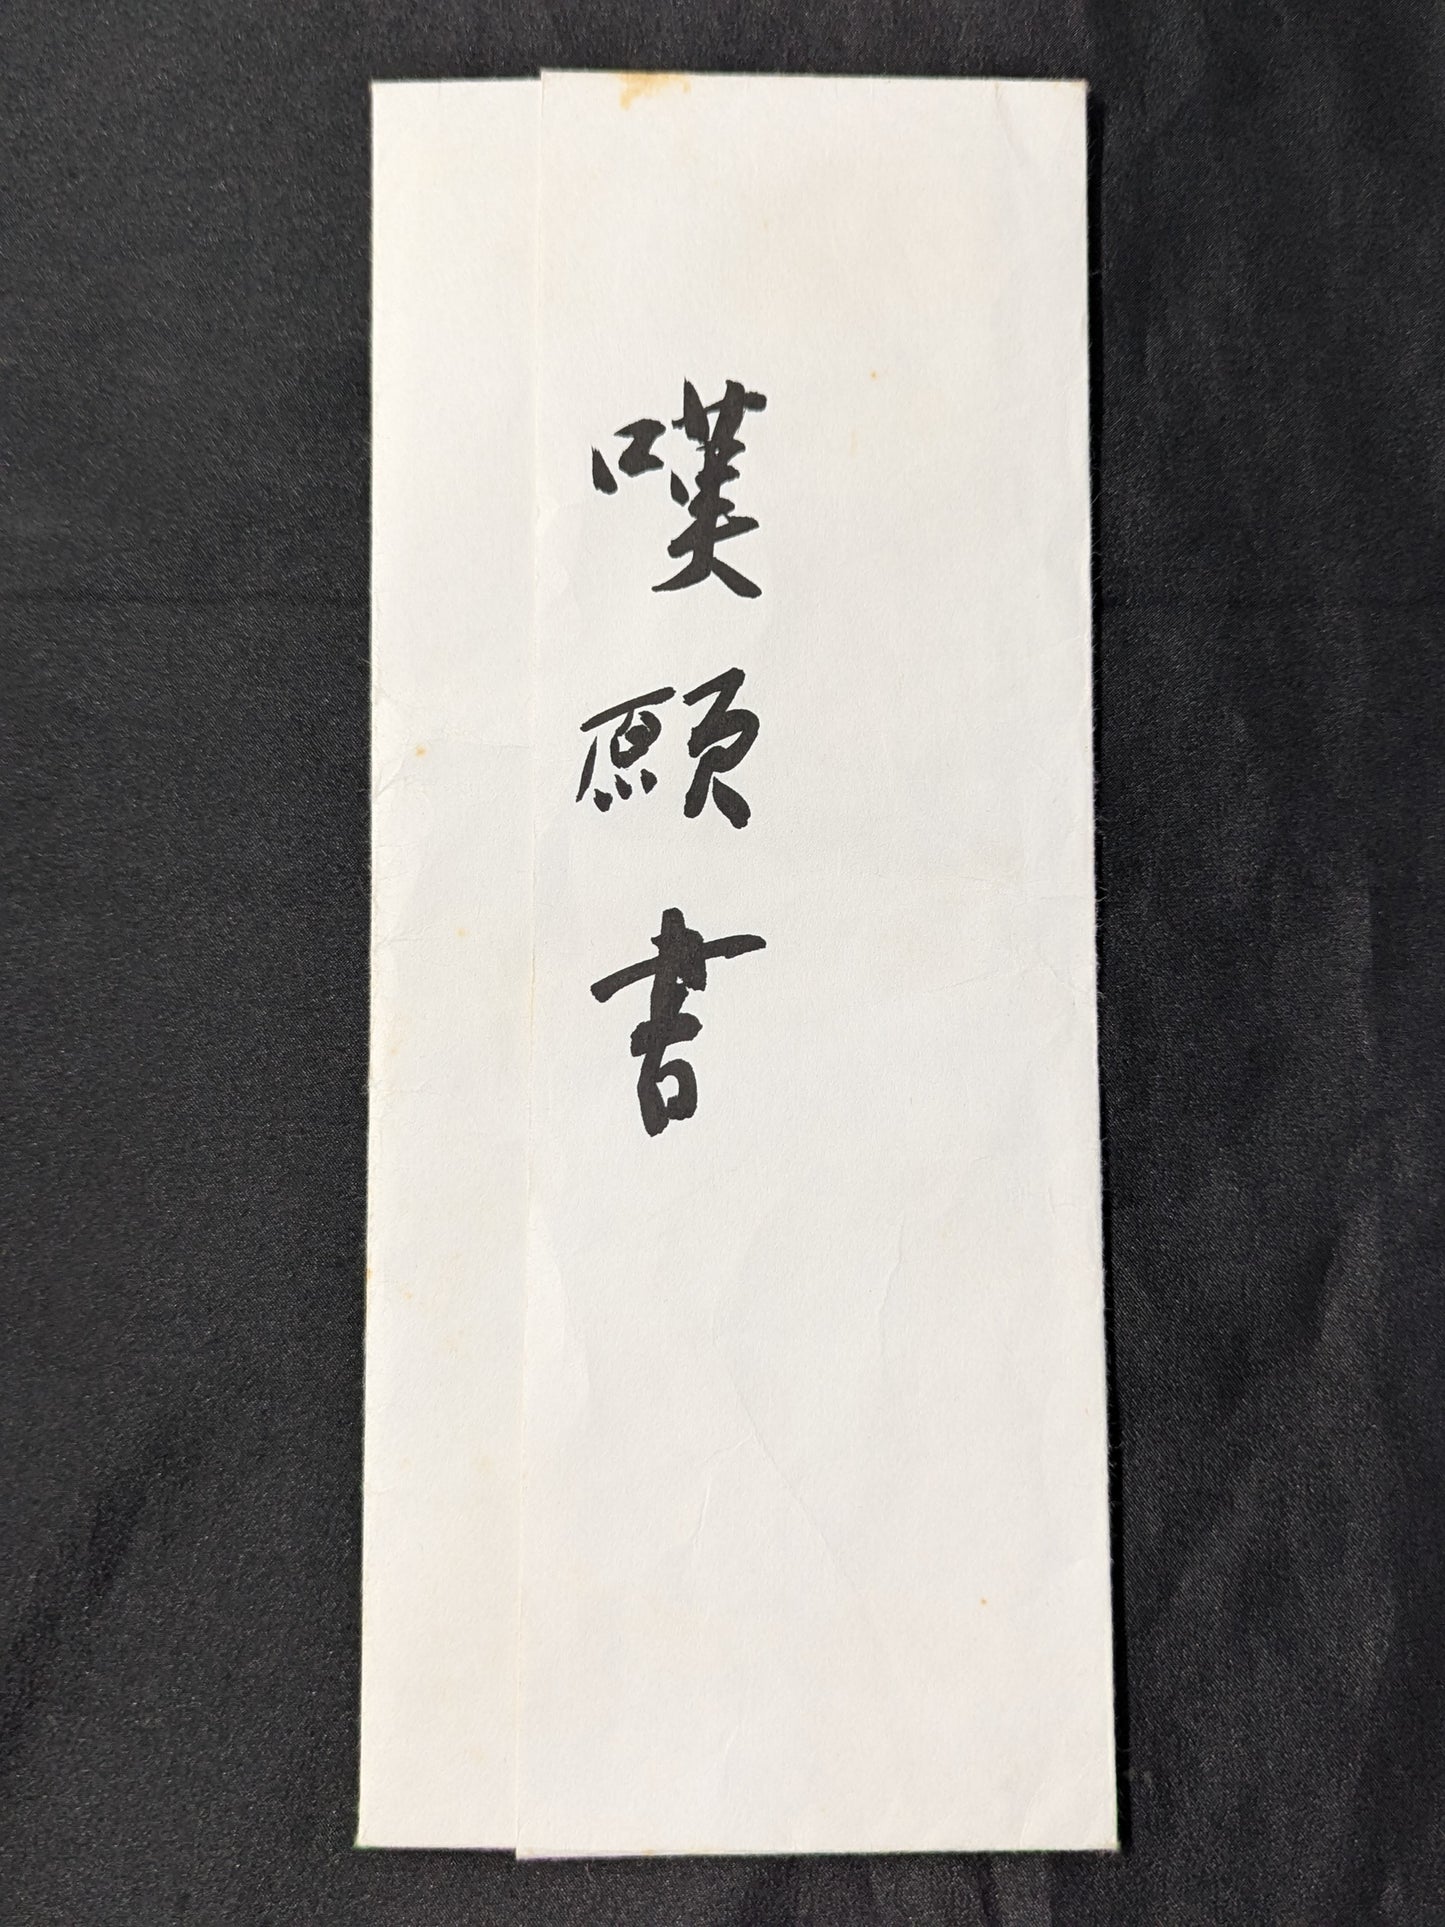 嘆願書